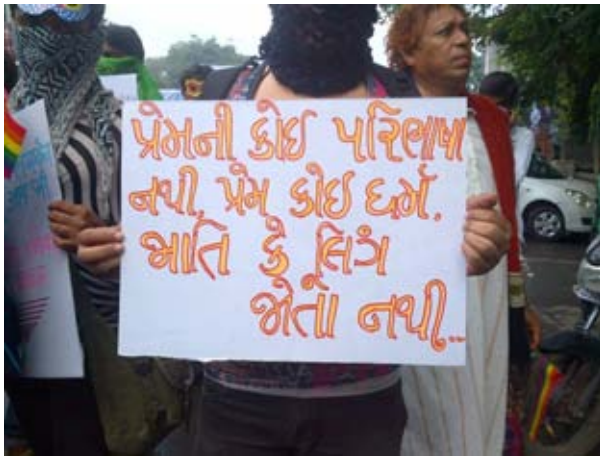 પ્રેમની કોઈ પરિભાષા
નથી, પ્રેમ કોઇ ધર્મ,
જાતિ કે લિંગ
જોતા નથી...